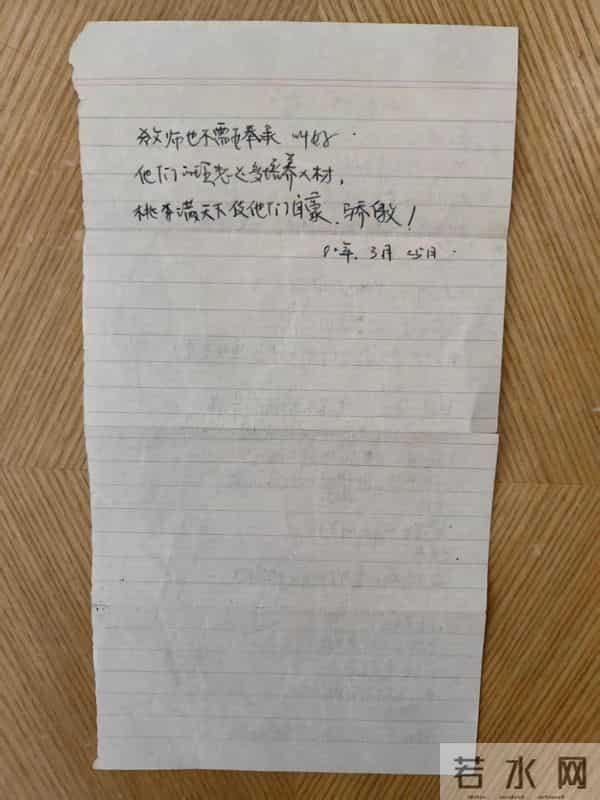 教师也不需要奉承 叫好.
他们的理想是多培养人材,
桃李满天下使他们自豪、骄傲!
80年.3月25日.
若水网